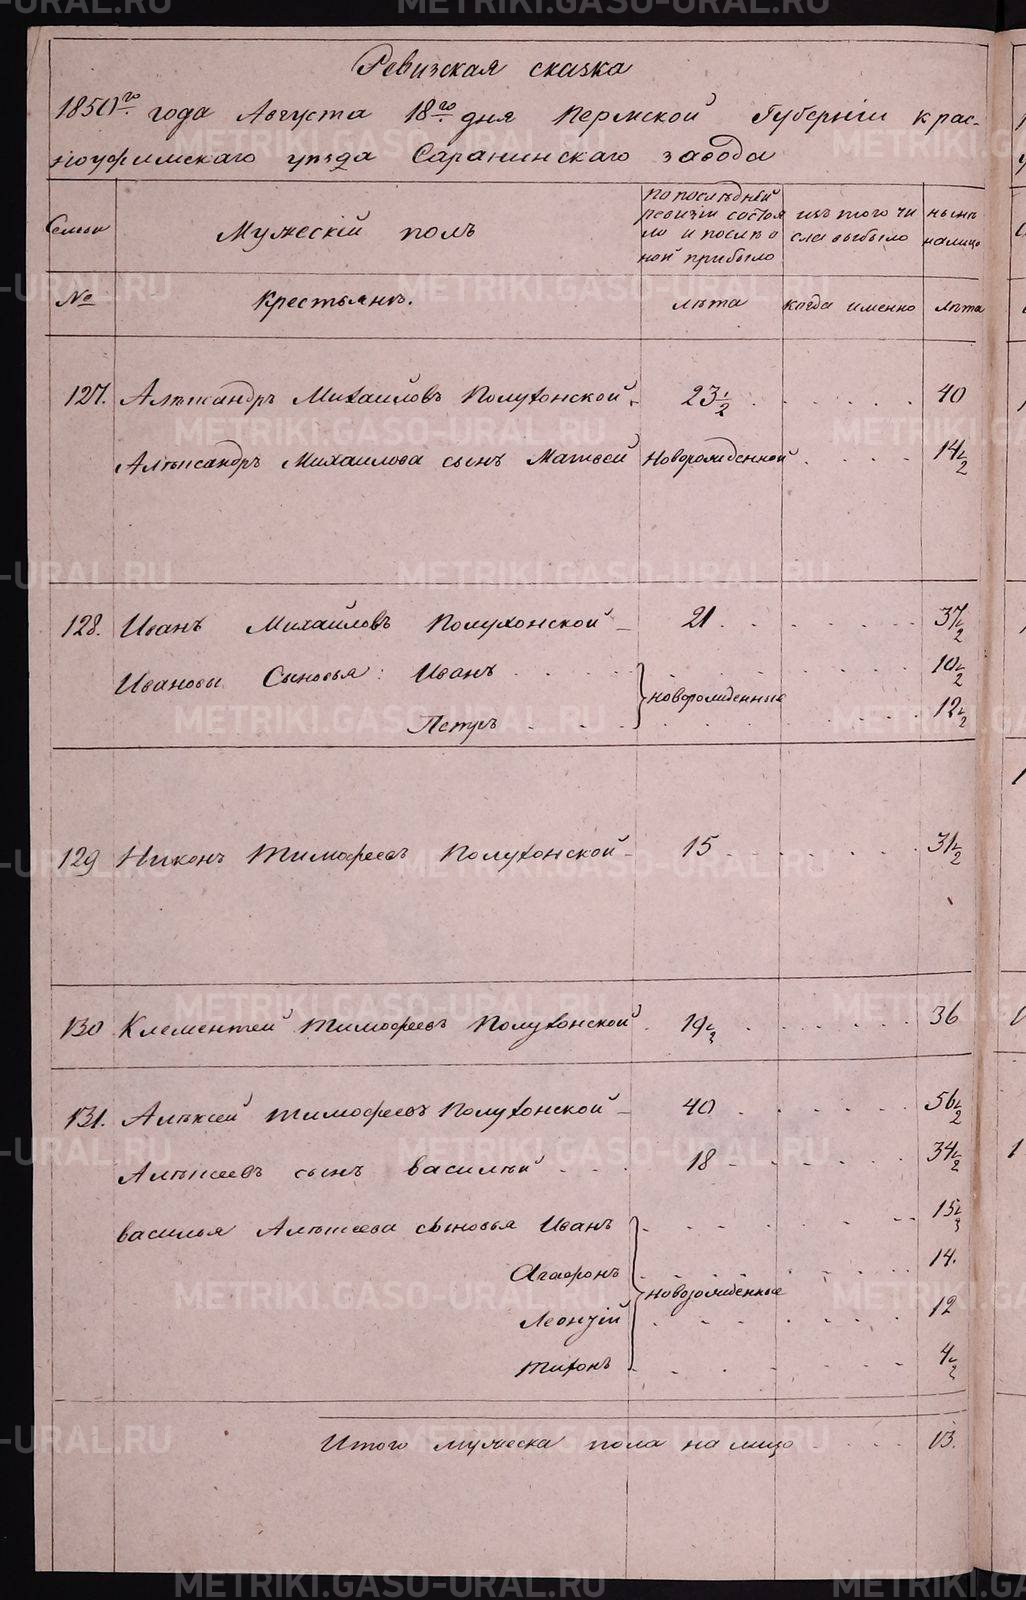 Ревизская сказка
1850го года Августа 18го дня Пермской Губернии крас-
ноуфимскаго уѣзда Саранинскаго завода
Семьи
Мужескій полъ
по послѣдней
ревизіи состоя
ло и послѣ о
ной прибыло
изъ того чи
сла выбыло
нынѣ
налицо
№
Крестьянъ.
лѣта
когда именно
лѣта
127. Алѣксандръ Михаиловъ Полухонской. 23 1/2 40
Алѣксандръ Михаилова сынъ Матвей Новорожденной 14 1/2
128. Иванъ Михайловъ Полухонской 21 37 1/2
Ивановы Сыновья: Иванъ 10 1/2
новорожденные
Петръ 12 1/2
129 Никонъ Тимофеевъ Полухонской 15 31 1/2
130 Клементей Тимофеевъ Полухонской 19 1/2 36
131. Алѣксей Тимофеевъ Полухонской 40 56 1/2
Алѣксеевъ сынъ василѣй 18 34 1/2
василья Алѣксеева сыновья Иванъ 15 1/2
Агафонъ 14.
новорожденные
Леонтій 12
Тихонъ 4 1/2
Итого мужеска пола на лицо 13.
METRIKI.GASO-URAL.RU